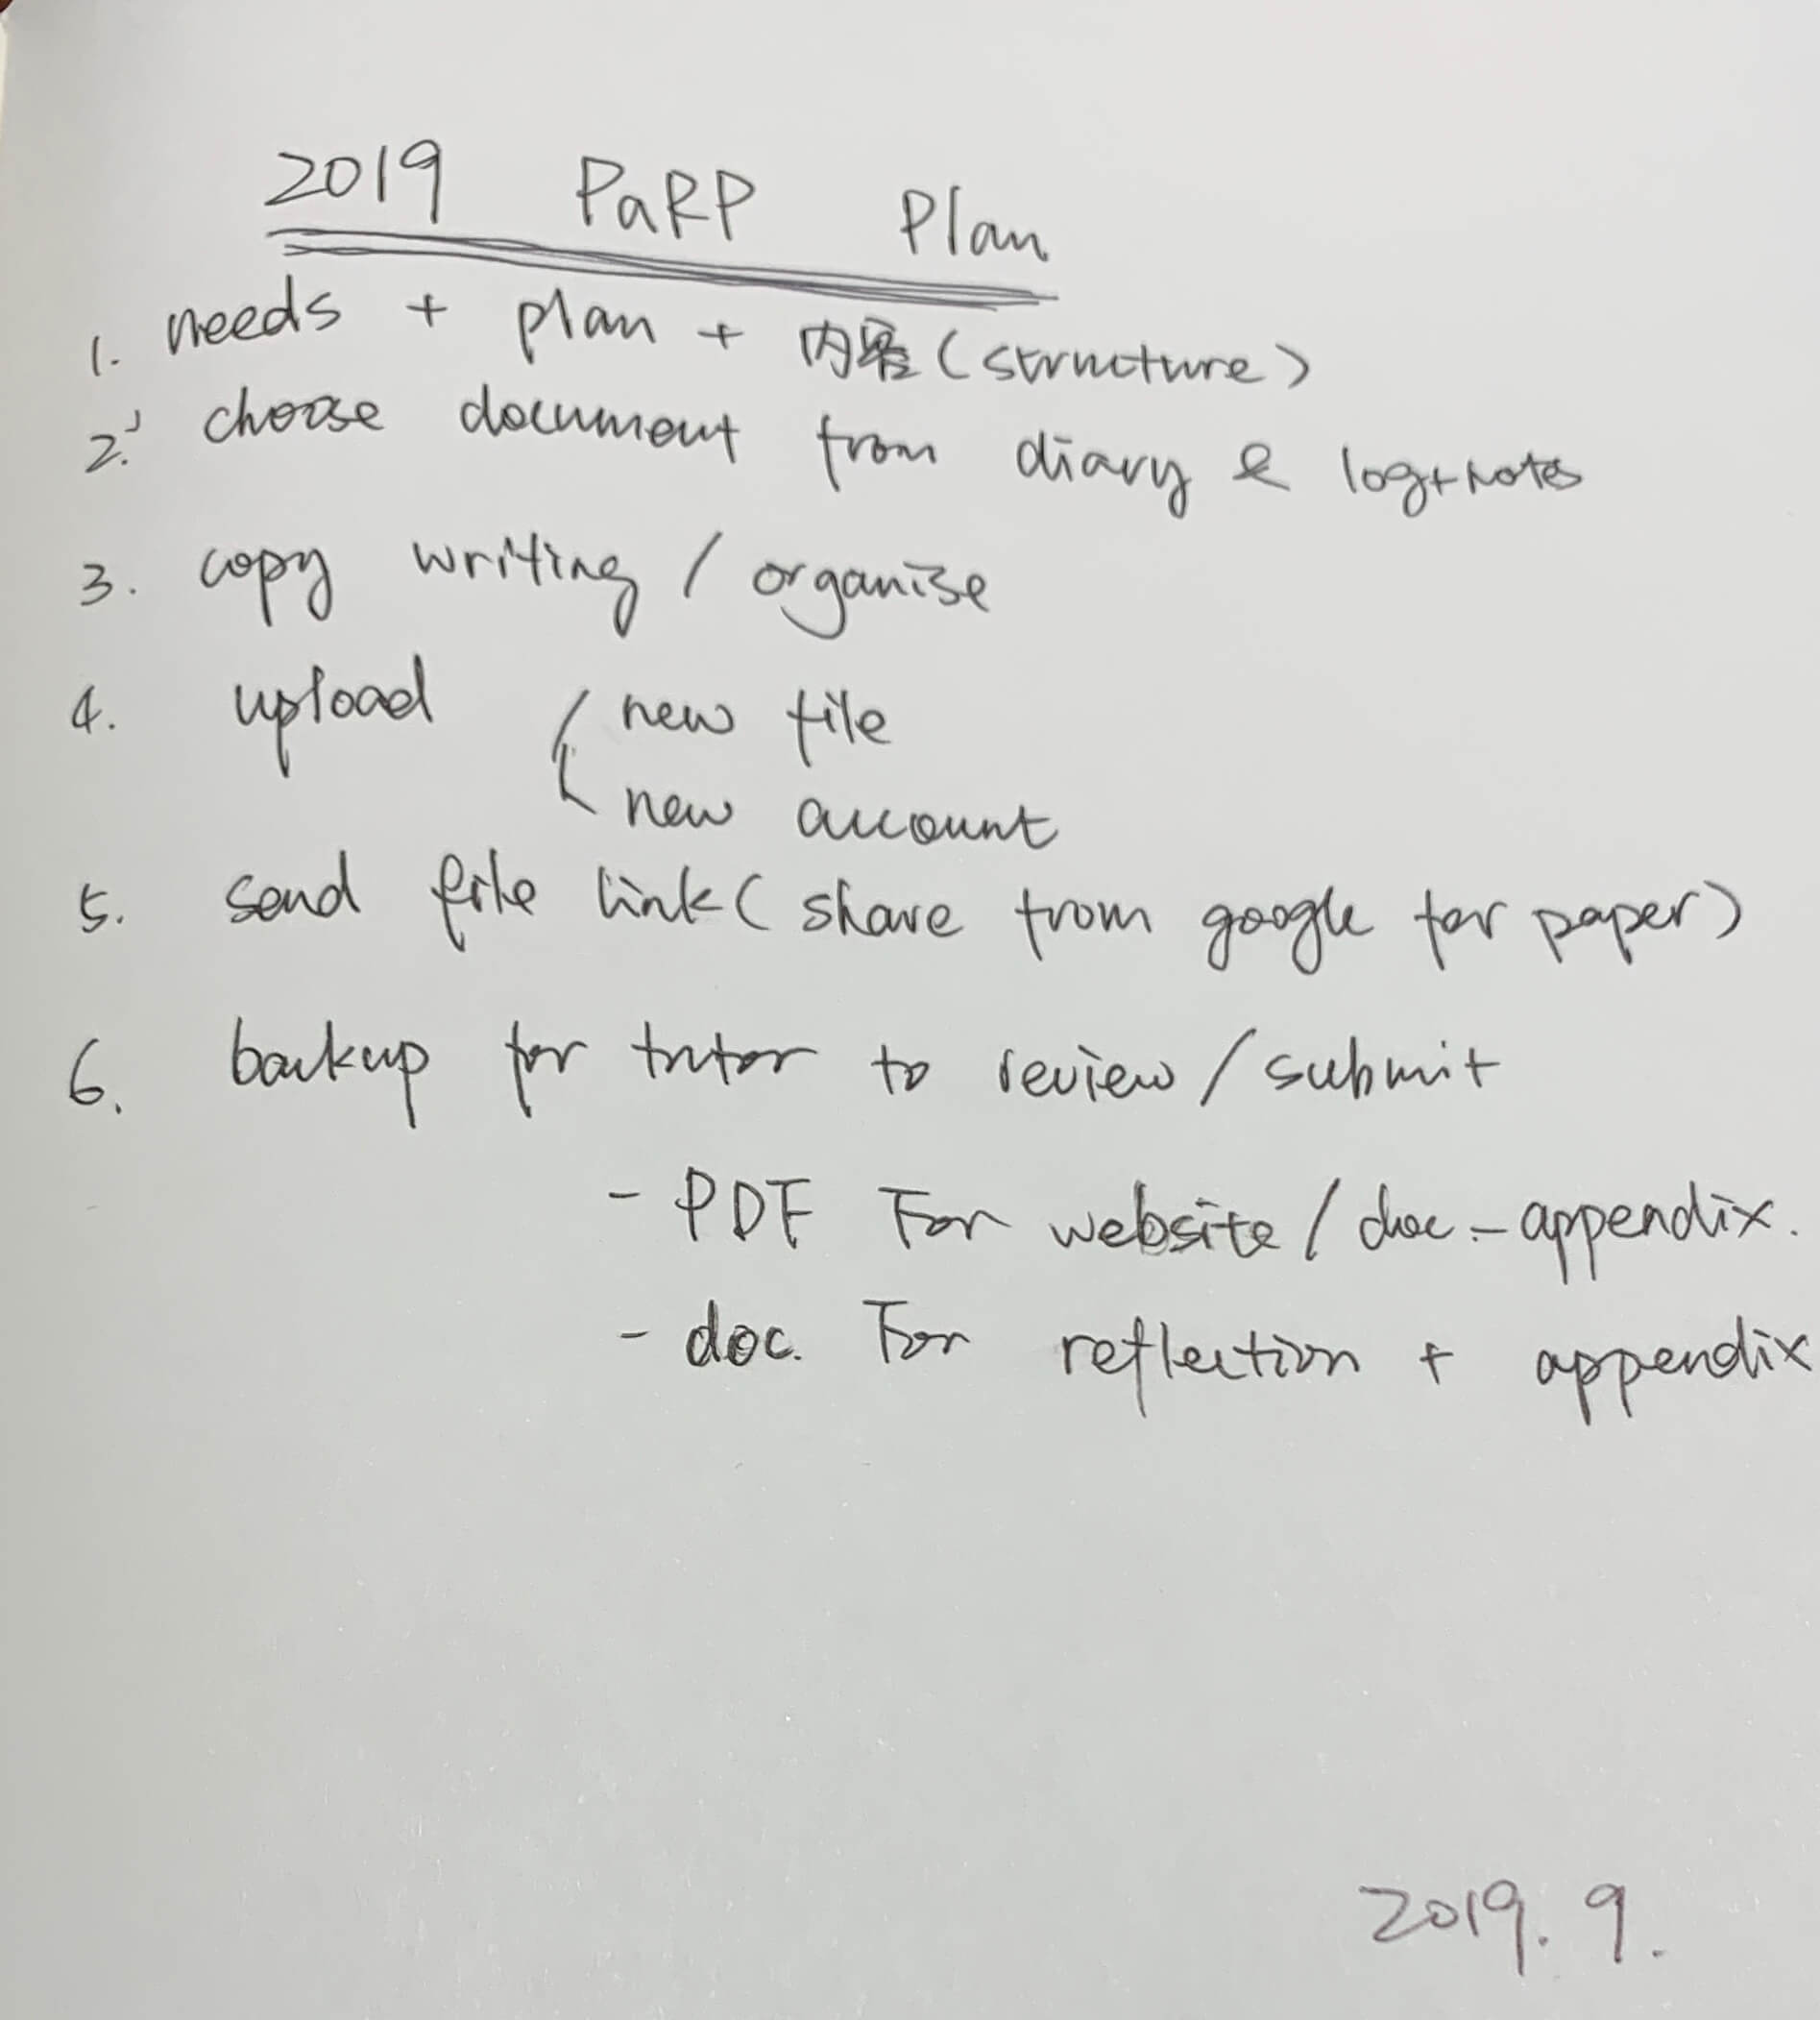 2019 PaRP Plan
1. needs + plan + 内容 (structure)
2. choose document from diary & log+notes
3. copy writing / organise
4. upload new file
new account
5. send file link (share from google for paper)
6. backup for tutor to review / submit
- PDF For website / doc - appendix.
- doc. For reflection + appendix
2019. 9.